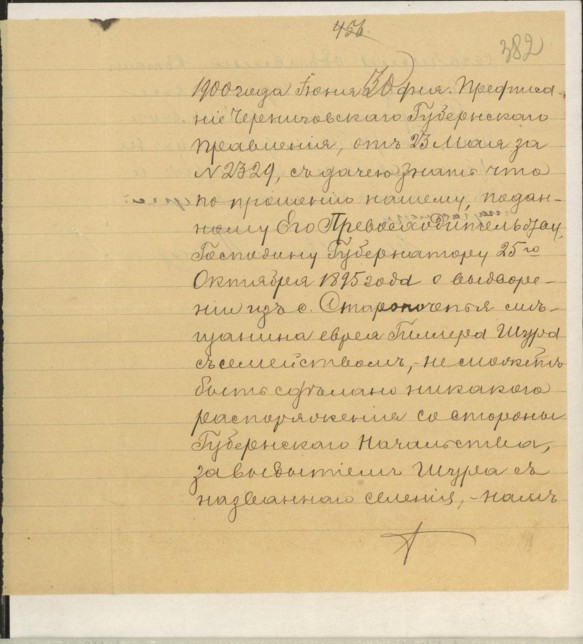 456
382
1900 года Июня 30 дня. Предписа-
ніе Черниговскаго Губернскаго
Правленія, отъ 23 Мая за
N 2329, съ дачею знать что
по прошенію нашему, подан-
ному Его Превосходительству,
Господину Губернатору 25го
Октября 1895 года о выдворе-
ніи изъ с. Старопочепья мѣ-
щанина еврея Гиллера Шура
съ семействомъ, - не можетъ
быть сдѣлано никакого
распоряженія со стороны
Губернскаго Начальства,
за выбытіемъ Шура съ
названнаго селенія, - намъ